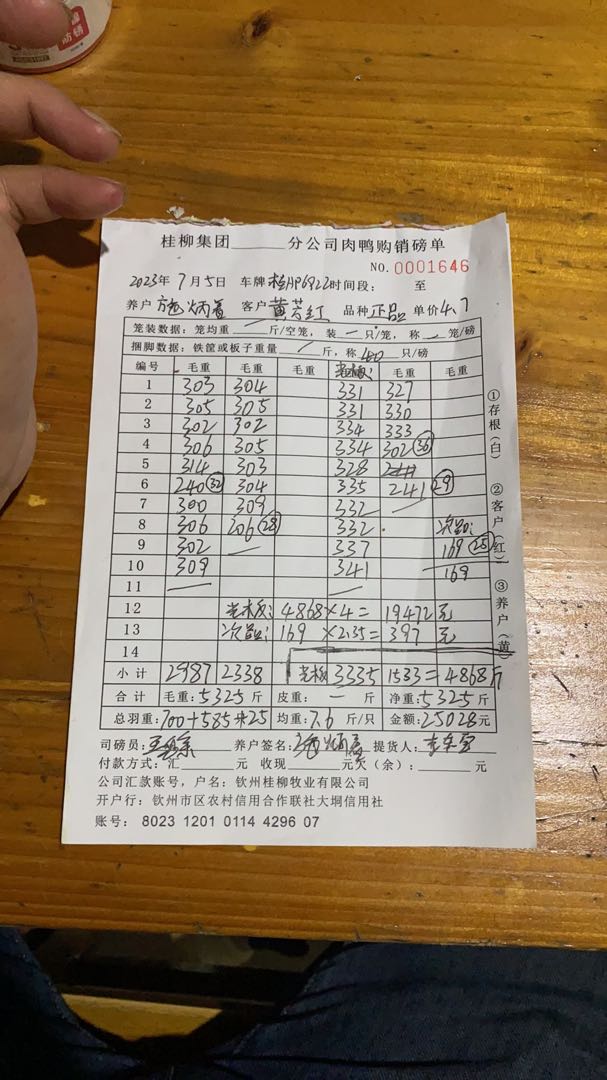 防锈
桂柳集团 分公司肉鸭购销磅单
NO. 0001646
2023年 7月5日 车牌 桂AP6922 时间段: 至
养户 施炳 客户 黄芳红 品种 正品 单价 4.7
笼装数据: 笼均重 — 斤/空笼, 装 — 只/笼, 称 — 笼/磅
捆脚数据: 铁筐或板子重量 / 斤, 称 400 只/磅
编号 毛重 毛重 毛重 老板: 毛重 毛重
1 303 304 331 327
2 305 305 331 330
3 302 302 334 333
4 306 305 334 302 (36)
5 314 303 328
6 240 (32) 304 335 241 (29)
7 300 309 332 —
8 306 206 (28) 332 次品:
9 302 — 337 169 (25)
10 309 341 169
11 — —
12 老板: 4868 ×4= 19472元
13 次品: 169 ×2.35= 397元
14
小计 2987 2338 老板 3335 1533=4868斤
合计 毛重: 5325 斤 皮重: — 斤 净重: 5325 斤
总羽重: 700+585+25 均重: 7.6 斤/只 金额: 25028元
司磅员: 养户签名: 提货人:
付款方式: 汇 元 收现 元 欠(余): 元
公司汇款账号, 户名: 钦州桂柳牧业有限公司
开户行: 钦州市区农村信用合作联社大垌信用社
账号: 8023 1201 0114 4296 07
①存根(白) ②客户(红) ③养户(黄)